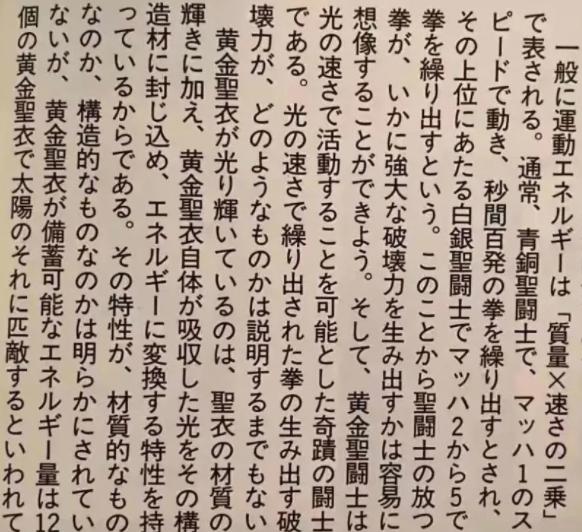 一般に運動エネルギーは「質量×速さの二乗」
で表される。通常、青銅聖闘士で、マッハ1のス
ピードで動き、秒間百発の拳を繰り出すとされ、
その上位にあたる白銀聖闘士でマッハ2から5で
拳を繰り出すという。このことから聖闘士の放つ
拳が、いかに強大な破壊力を生み出すかは容易に
想像することができよう。そして、黄金聖闘士は
光の速さで活動することを可能とした奇蹟の闘士
である。光の速さで繰り出された拳の生み出す破
壊力が、どのようなものかは説明するまでもない
黄金聖衣が光り輝いているのは、聖衣の材質の
輝きに加え、黄金聖衣自体が吸収した光をその構
造材に封じ込め、エネルギーに変換する特性を持
っているからである。その特性が、材質的なもの
なのか、構造的なものなのかは明らかにされてい
ないが、黄金聖衣が備蓄可能なエネルギー量は12
個の黄金聖衣で太陽のそれに匹敵するといわれて